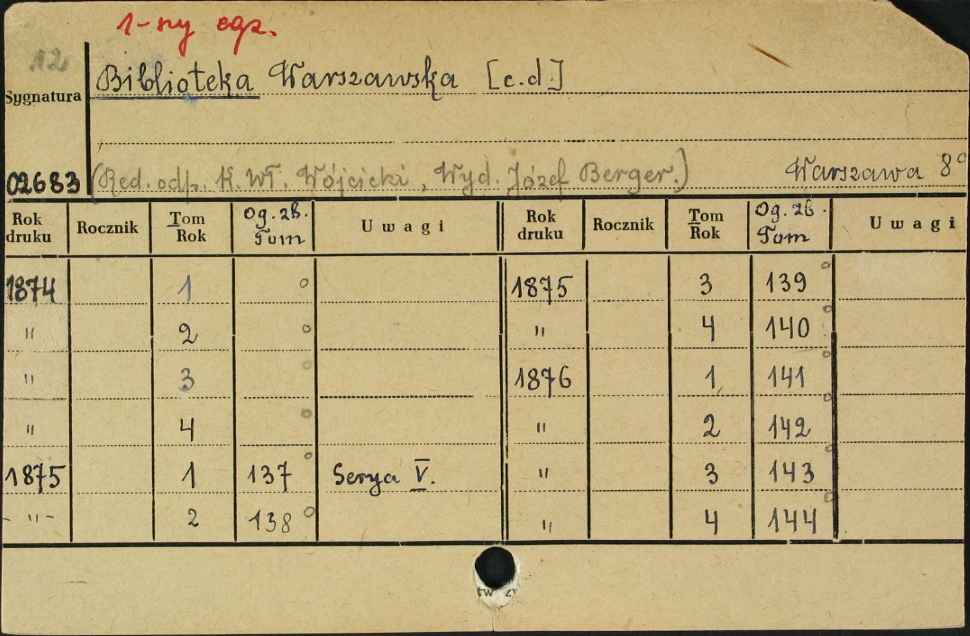 1-ny egz.
12
Biblioteka Warszawska [c.d.]
Sygnatura
02683 (Red. odp. K. Wł. Wójcicki, Wyd. Józef Berger.) Warszawa 8°
Rok druku Rocznik Tom Rok Og. zb. Tom Uwagi Rok druku Rocznik Tom Rok Og. zb. Tom Uwagi
1874 1 ° 1875 3 139 °
" 2 ° " 4 140 °
" 3 ° 1876 1 141 °
" 4 ° " 2 142 °
1875 1 137 ° Serya V. " 3 143 °
- " - 2 138 ° " 4 144 °